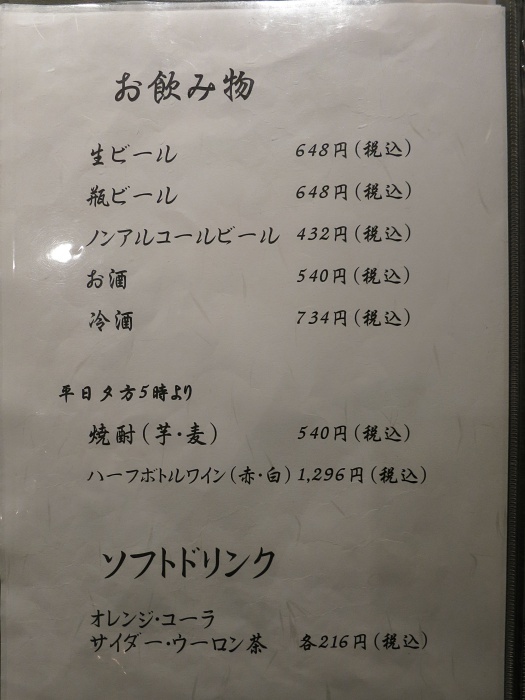 お飲み物
生ビール 648円(税込)
瓶ビール 648円(税込)
ノンアルコールビール 432円(税込)
お酒 540円(税込)
冷酒 734円(税込)
平日夕方5時より
焼酎(芋・麦) 540円(税込)
ハーフボトルワイン(赤・白) 1,296円(税込)
ソフトドリンク
オレンジ・コーラ
サイダー・ウーロン茶 各216円(税込)